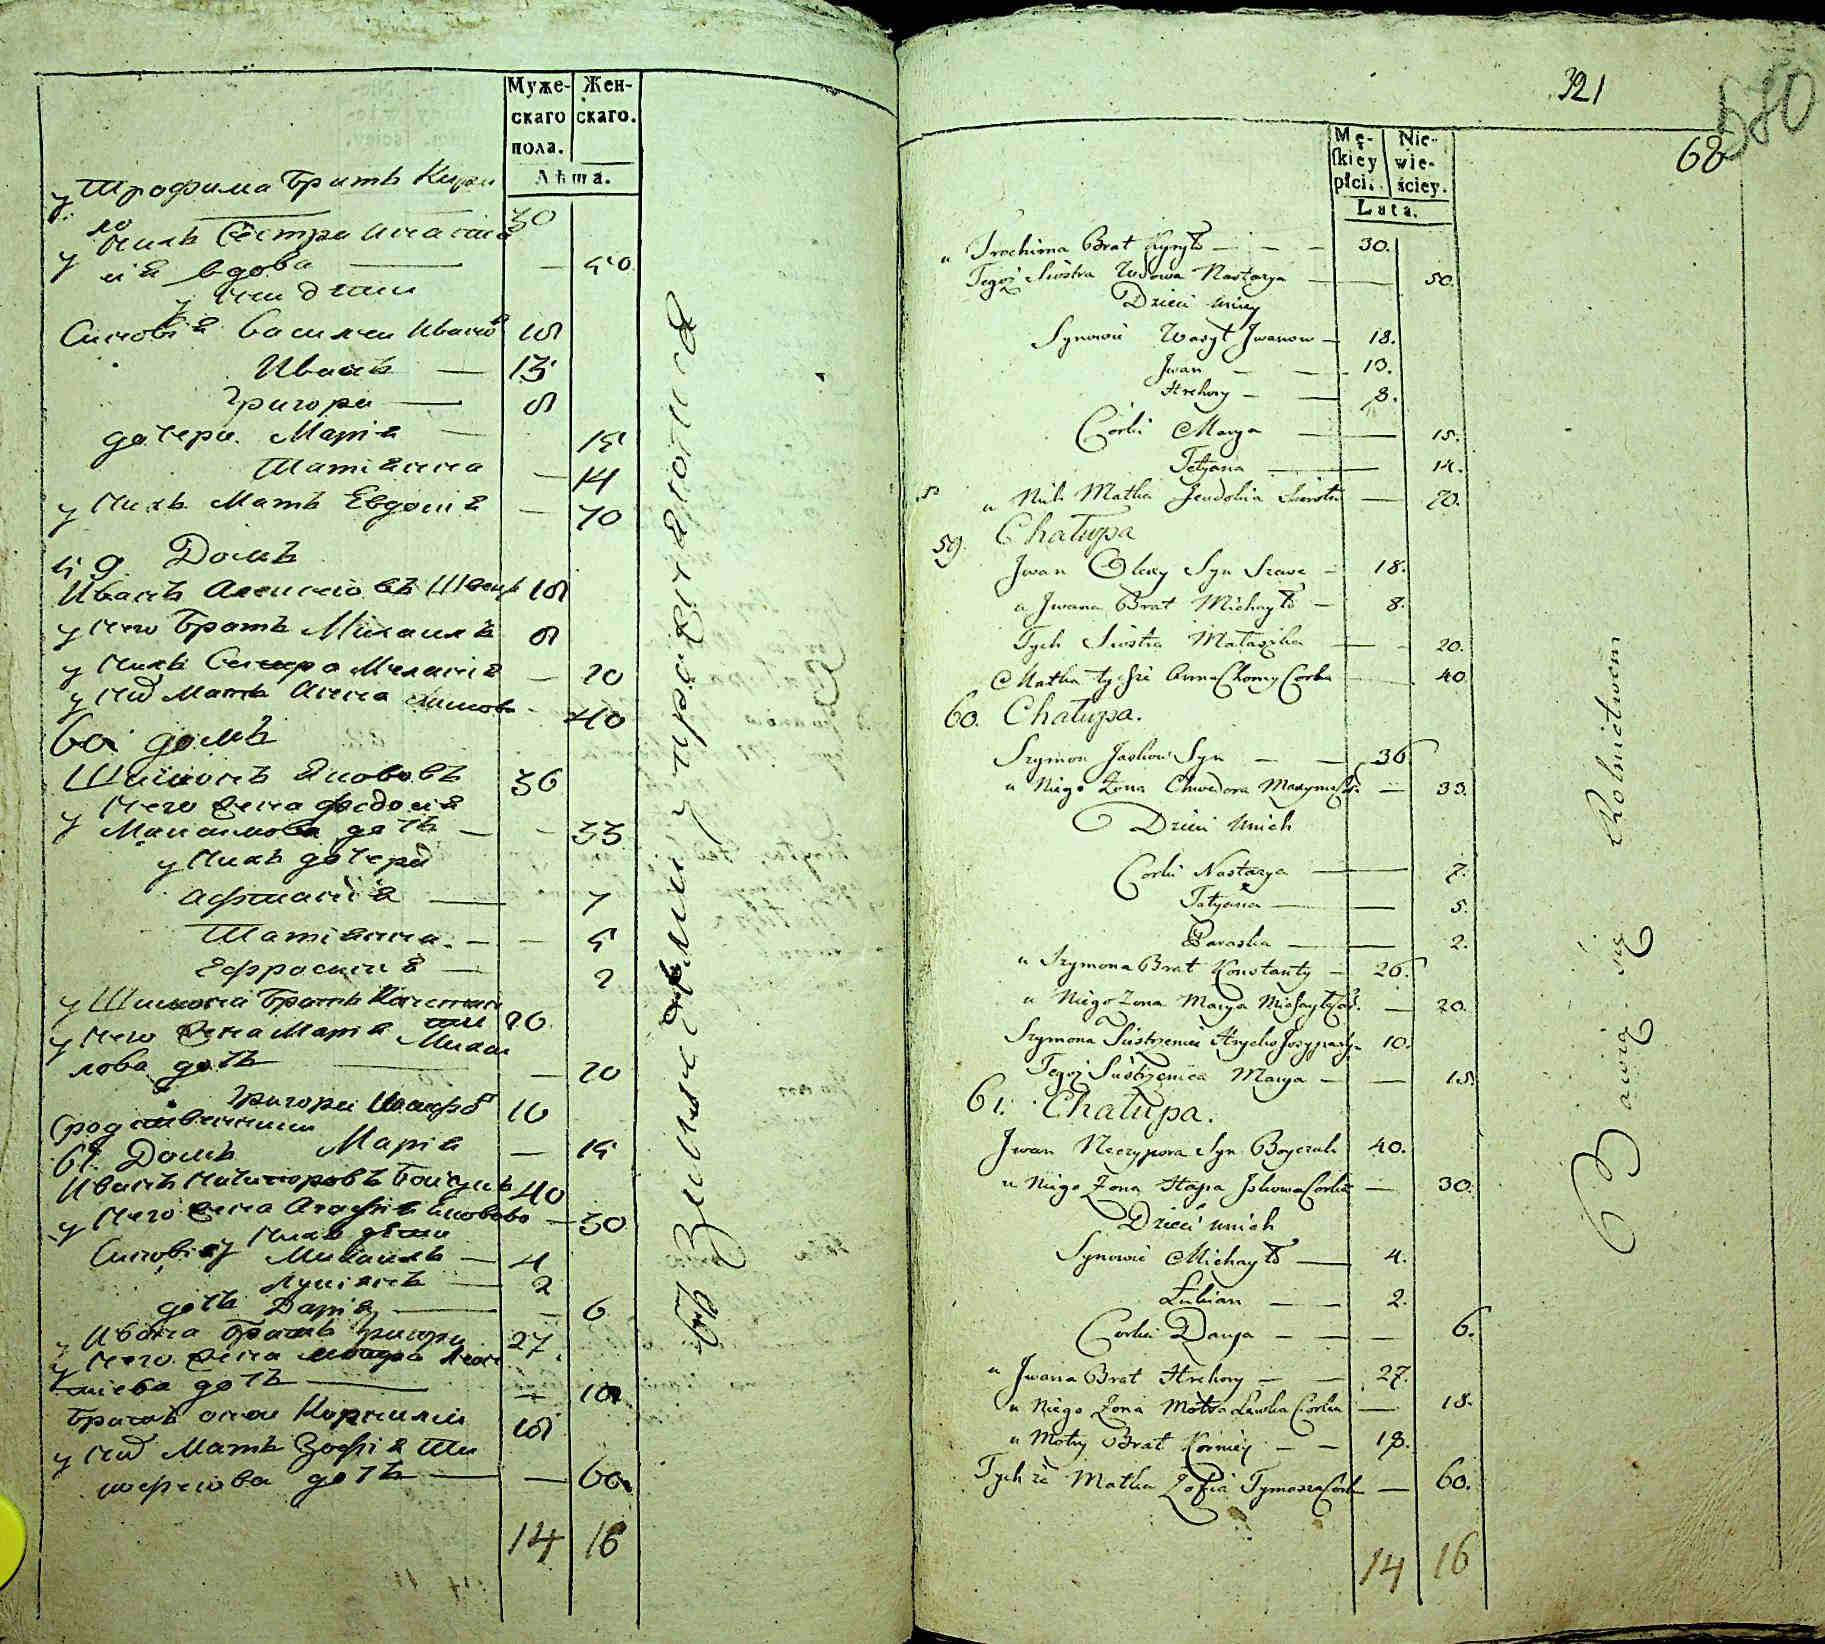 Муже-
скаго
пола.
Жен-
скаго.
Лѣта.
у Трофима братъ Кири
ло 30
у нихъ сестра Анастасі
ия вдова — 50
у ней дети
Синовія Василеи Ивано 18
Иванъ — 13
Григори — 8
дочери Марія — 15
Татіанна — 14
у нихъ Мать Евдокія — 70
59 Домъ
Иванъ Алексіовъ Швецъ 18
у него братъ Михаилъ 8
у нихъ Сестра Меланія — 20
у них Мать Анна — 40
60 домъ
Шимонъ Якововъ 36
у него жена Федосія
Максимова дочь — 33
у нихъ дочери
Афтанасія — 7
Татіанна — 5
Ефросинія — 2
у Шимона братъ Констан
тин 26
у него жена Марія Михаи
лова дочь — 20
Григореи Иосифов 10
Сродственники
Марія — 15
61 Домъ
Иванъ Ничипоровъ Бойчукъ 40
у него жена Агафія Яковова — 30
у нихъ дети
Синовія Михаилъ — 4
Лукіанъ — 2
дочь Дарія — 6
у Ивана братъ Григори 27
у него жена Мотра Леон
тиева дочь — 18
братъ оной Корнилии 18
у них Мать Зофія Ти
мофеова дочь — 60
14 16
въ Земледелии упровженяются
321
580
68
Mę-
skiéy
płci.
Nie-
wie-
ściey.
Lata.
u Trochima Brat Kyryło — 30.
Tegoż Siostra Wdowa Nastazya — 50.
Dzieci u niey
Synowie Wasyl Iwanow — 18.
Iwan — 13.
Hrehory — 8.
Corki Marya — 15.
Tetyana — 14.
u Nich Matka Jewdokia — 70.
59. Chałupa
Iwan Olexy Syn Szewc — 18.
u Iwana Brat Michayło — 8.
Tych Siostra Małaszka — 20.
Matka tychże Anna Chomy Corka — 40
60. Chałupa.
Szymon Jaskow Syn — 36
u Niego Żona Chwedora Maxyma — 33.
Dzieci u nich
Corki Nastazya — 7.
Tatyana — 5.
Paraska — 2.
u Szymona Brat Konstanty — 26.
u Niego Żona Marya Michayły Cor. — 20.
Szymona Siostrzeniec Hryćko Jozypow — 10.
Tegoż Siostrzenica Marya — 15.
61. Chałupa.
Iwan Neczypora Syn Boyczuk 40.
u Niego Żona Hapa Jskowa Corka — 30.
Dzieci u nich
Synowie Michayło — 4.
Łukian — 2.
Corka Darya — 6.
u Iwana Brat Hrehory — 27.
u Niego Żona Motra Lewka Corka — 18.
u Motry Brat Korniey — 18.
Tychże Matka Zofia Tymosza Cork — 60.
14 16
Bawią się Rolnictwem